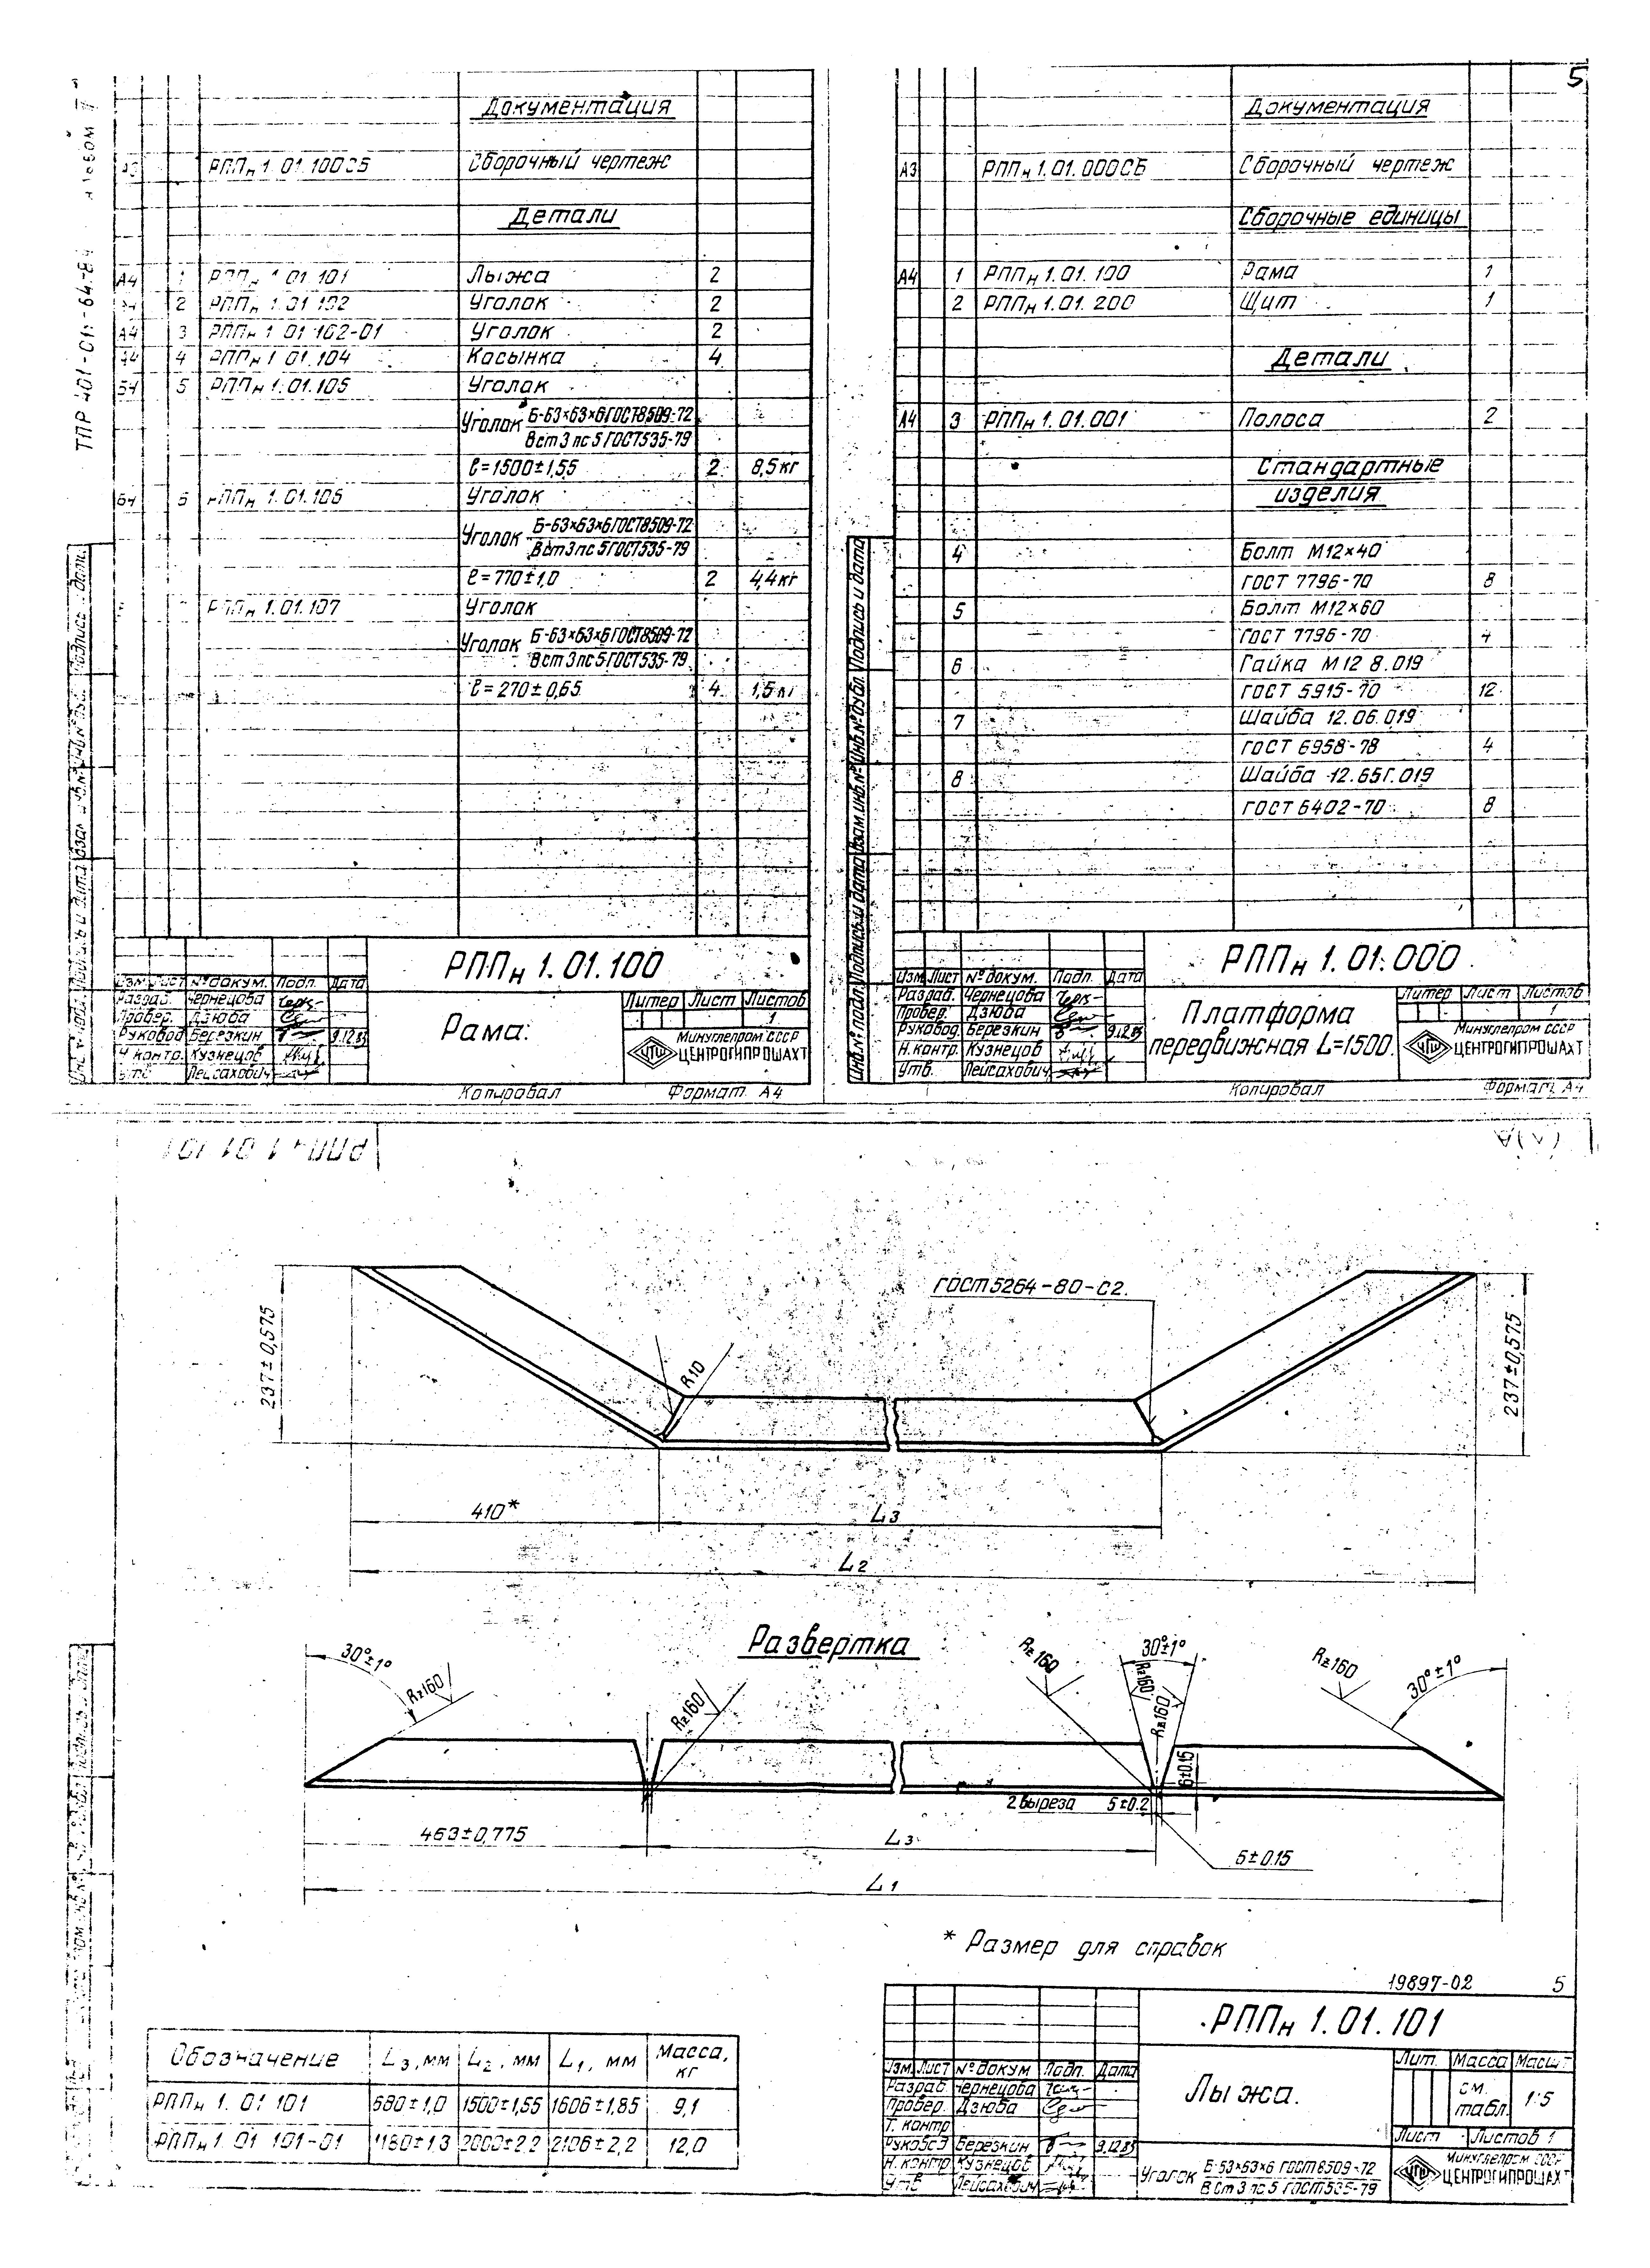 5
ТПР 401-01-64.84 альбом
Документация
РППн 1.01.100СБ Сборочный чертеж
Детали
А4 1 РППн 1.01.101 Лыжа 2
2 РППн 1.01.102 Уголок 2
А4 3 РППн 1.01.102-01 Уголок 2
4 РППн 1.01.104 Косынка 4
Б4 5 РППн 1.01.105 Уголок
Уголок Б-63×63×6 ГОСТ8509-72
Вст3пс5 ГОСТ535-79
ℓ=1500±1,55 2 8,5кг
Б4 6 РППн 1.01.106 Уголок
Уголок Б-63×63×6 ГОСТ8509-72
Вст3пс5 ГОСТ535-79
ℓ=770±1,0 2 4,4кг
РППн 1.01.107 Уголок
Уголок Б-63×63×6 ГОСТ8509-72
Вст3пс5 ГОСТ535-79
ℓ=270±0,65 4 1,5кг
РППн 1.01.100
Изм Лист №докум. Подп. Дата
Разраб. Чернецова
Провер. Дзюба
Руковод Березкин 9.12.83
Н.контр. Кузнецов
Утв Лейсахович
Рама.
Литер Лист Листов
1
Минуглепром СССР
ЦЕНТРОГИПРОШАХТ
Копировал Формат А4
Документация
А3 РППн 1.01.000СБ Сборочный чертеж
Сборочные единицы
А4 1 РППн 1.01.100 Рама 1
2 РППн 1.01.200 Щит 1
Детали
А4 3 РППн 1.01.001 Полоса 2
Стандартные
изделия
4 Болт М12×40
ГОСТ 7796-70 8
5 Болт М12×60
ГОСТ 7796-70 4
6 Гайка М12 8.019
ГОСТ 5915-70 12
7 Шайба 12.06.019
ГОСТ 6958-78 4
8 Шайба 12.65Г.019
ГОСТ 6402-70 8
Инв.№ подл. Подпись и дата Взам.инв.№ Инв.№ дубл. Подпись и дата
РППн 1.01.000
Изм Лист №докум. Подп. Дата
Разраб. Чернецова
Провер. Дзюба
Руковод. Березкин 9.12.83
Н.контр. Кузнецов
Утв. Лейсахович
Платформа
передвижная L=1500.
Литер Лист Листов
1
Минуглепром СССР
ЦЕНТРОГИПРОШАХТ
Копировал Формат А4
РППн 1 01 101
237±0,575
R10
ГОСТ5264-80-С2.
237±0,575
410*
L3
L2
Развертка
30°±1°
Rz160
Rz160
Rz160
30°±1°
Rz160
Rz160
Rz160
30°±1°
6±0.15
2 выреза 5±0.2
463±0,775
L3
6±0.15
L1
* Размер для справок
19897-02 5
Обозначение L3, мм L2, мм L1, мм Масса, кг
РППн 1.01 101 680±1,0 1500±1,55 1606±1,85 9,1
РППн 1.01 101-01 1180±1,3 2000±2,2 2106±2,2 12,0
РППн 1.01.101
Изм. Лист №докум Подп. Дата
Разраб. Чернецова
Провер. Дзюба
Т. контр
Руковод Березкин 9.12.83
Н. контр Кузнецов
Утв Лейсахович
Лыжа.
Лит. Масса Масшт
см. табл. 1:5
Лист Листов 1
Уголок Б-63×63×6 ГОСТ8509-72
ВСт3пс5 ГОСТ535-79
Минуглепром СССР
ЦЕНТРОГИПРОШАХТ